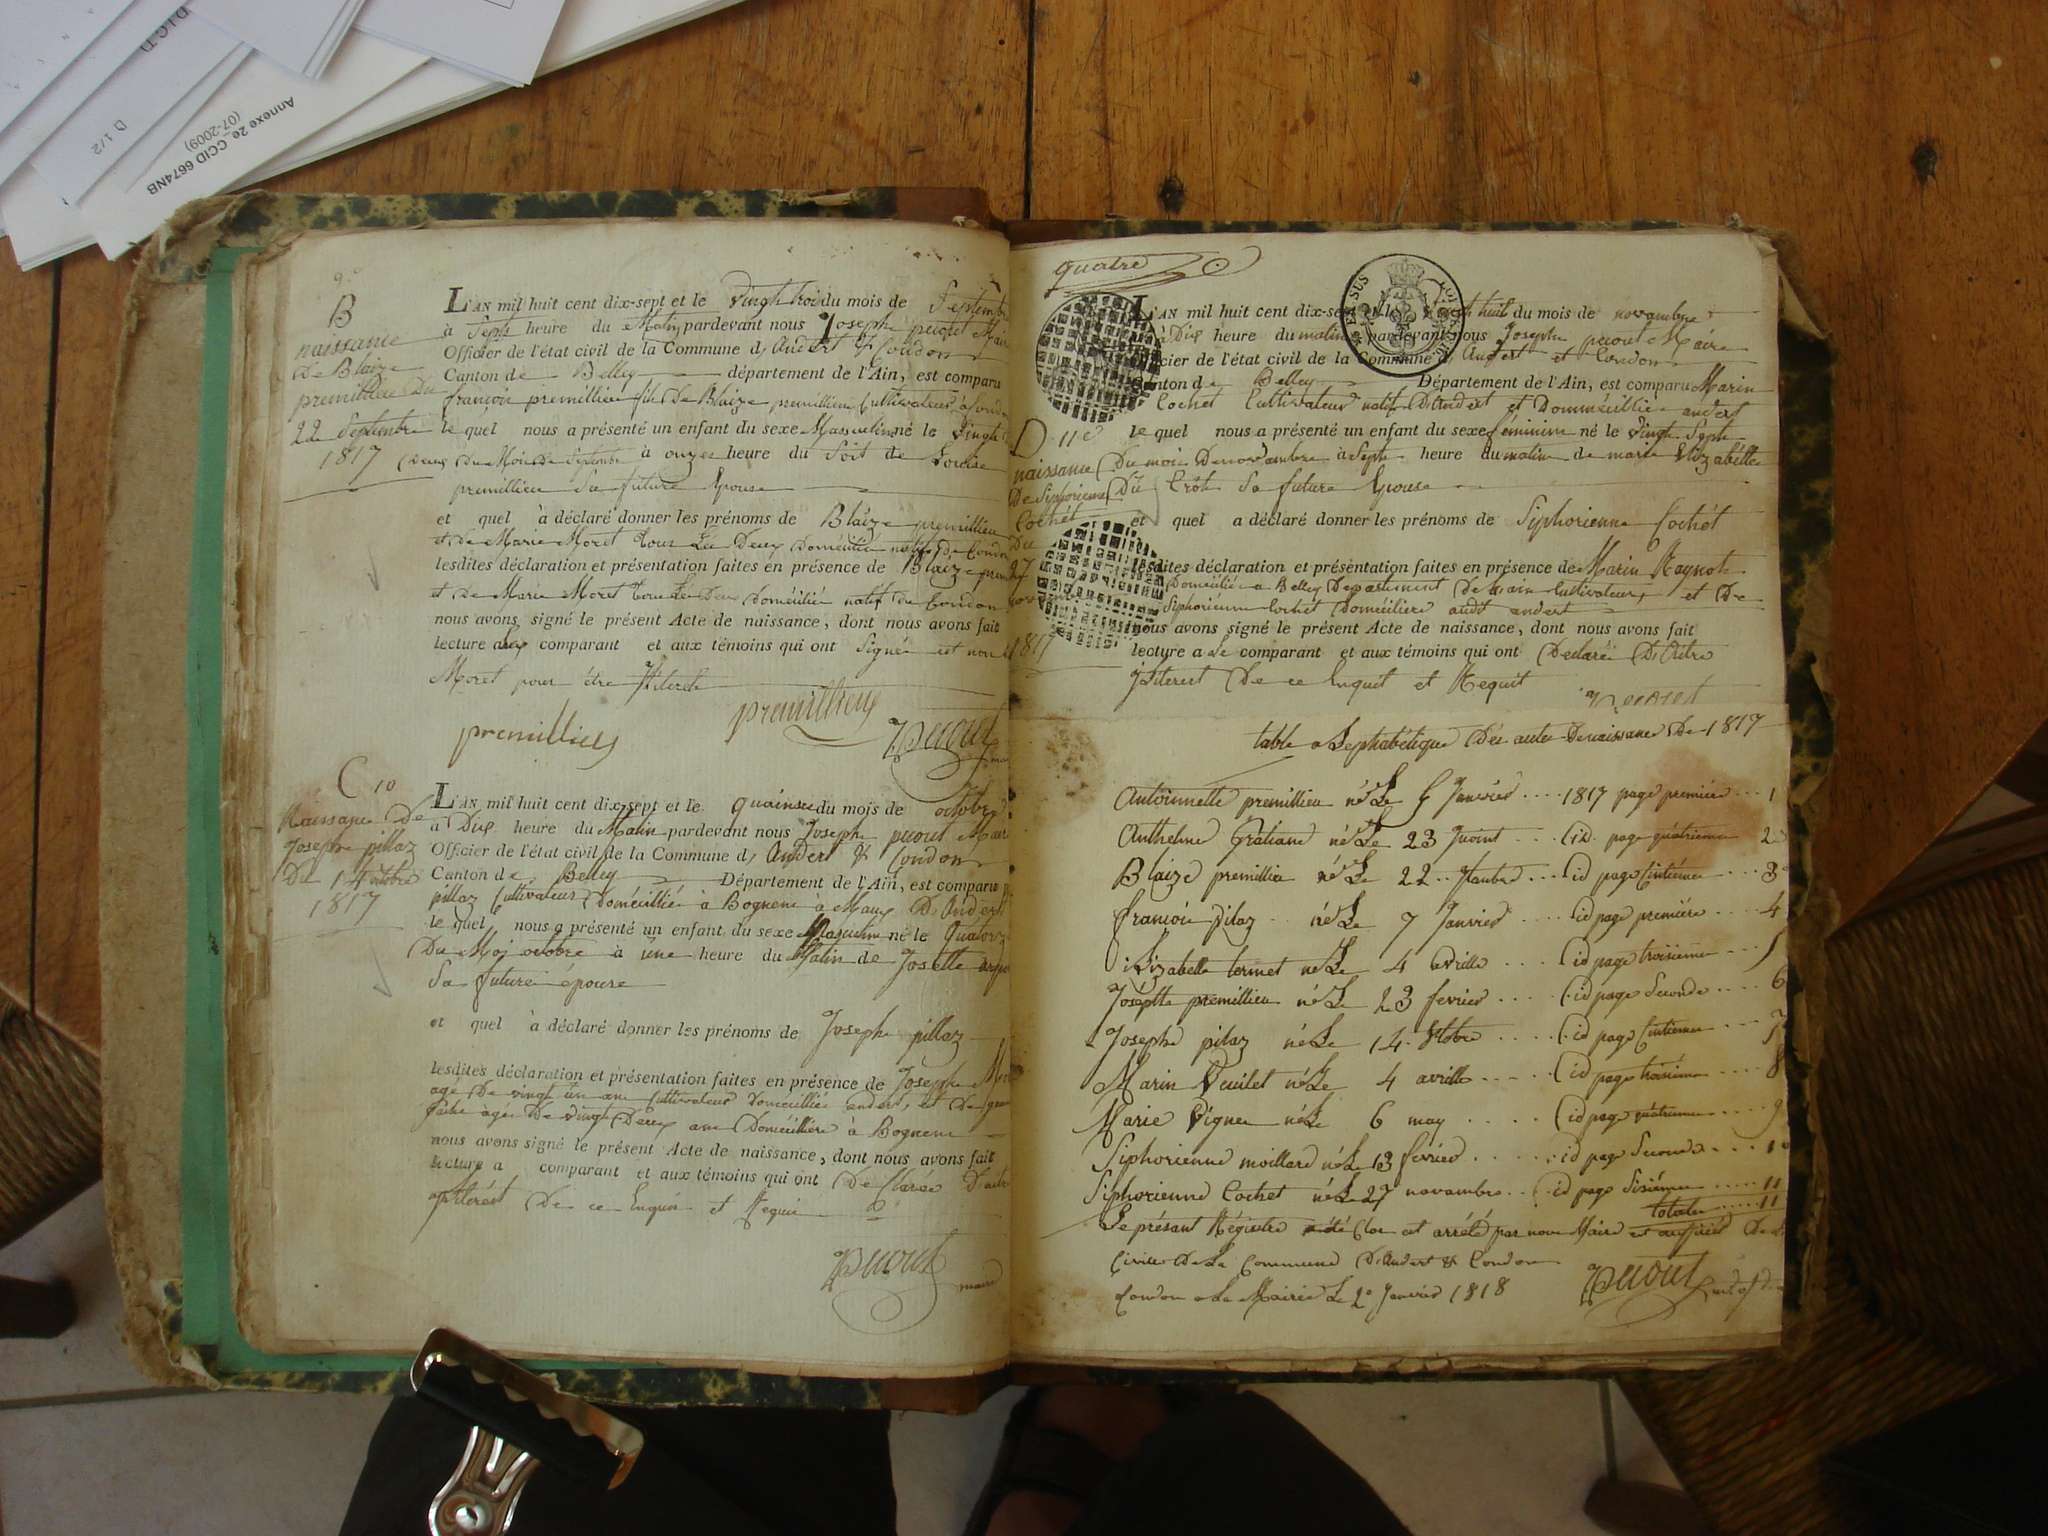 D.I.C.T)
D 1/2
Annexe 2e_CCID 6674NB
(07-2009)
9e
B
naissance
de Blaize
premillieu Du
22 Septembre
1817
L'AN mil huit cent dix-sept et le vingt troi du mois de Septembre
à Sept heure du Matin pardevant nous Joseph pucout Maire
Officier de l'état civil de la Commune d, Andert & Condon
Canton de Belley département de l'Ain, est comparu
françoi premillieu fils De Blaize premillieu Cultivateur à Condon
le quel nous a présenté un enfant du sexe Masculin né le vingt
Deux Du Mois De Septembre à onze heure du Soir de Louise
premillieu sa future Epouse
et quel à déclaré donner les prénoms de Blaize premillieu
et De Marie Moret tous Les Deux Domécilié natif De Condon
lesdites déclaration et présentation faites en présence de Blaize premillieu
et De Marie Moret tous Les Deux Domécilié natif De Condon
nous avons signé le présent Acte de naissance, dont nous avons fait
lecture aux comparant et aux témoins qui ont Signé et non la
Moret pour être Illiterete
premillieu
premillieu
Pucout
C 10
Naissance de
Joseph pillaz
Du 14 octobre
1817
L'AN mil huit cent dix-sept et le quainze du mois de octobre
à Dix heure du Matin pardevant nous Joseph pucout Maire
Officier de l'état civil de la Commune d, Andert & Condon
Canton de Belley Département de l'Ain, est comparu
pillaz Cultivateur Domécillié à Bognene à Maux D'Andert
le quel nous a présenté un enfant du sexe Masculin né le Quatorze
Du Moi octobre à une heure du Matin de Josette
Sa future épouse
et quel à déclaré donner les prénoms de Joseph pillaz
lesdites déclaration et présentation faites en présence de Joseph
agé De vingt un ans Cultivateur Domécillié andert, et De
âgée De vingt Deux ans Domécillière à Bognene
nous avons signé le présent Acte de naissance, dont nous avons fait
lecture a comparant et aux témoins qui ont De Claree D'aitre
De ce Enquis et Requi
Pucout
maire
quatre
L'AN mil huit cent dix-sept et le vingt huit du mois de novembre
à Dix heure du matin pardevant nous Joseph pucout Maire
Officier de l'état civil de la Commune d, Andert et Condon
Canton de Belley Département de l'Ain, est comparu Marin
Cochet Cultivateur natif D'Andert et Domméeillié andert
D. 11e
naissance
De Siphorienne
Cochét
Du
27
novembre
1817
le quel nous a présenté un enfant du sexe féminin né le vingt Sept
Du mois De novambre à Sept heure du matin de marie Elizabette
Du Crôt Sa future Epouse
et quel a déclaré donner les prénoms de Siphorienne Cochét
lesdites déclaration et présentation faites en présence de Marin Raynot
Domécilié a Belley Departement De Lain Cultivateur, et De
Siphorienne Cochet Domécilière audit andert
nous avons signé le présent Acte de naissance, dont nous avons fait
lecture a Le comparant et aux témoins qui ont Declaré D'Aitre
De ce Enquit et Requit
Pucout
table alephabétique Dès acte De naissance De 1817
Antoinnette premillieu né Le Janvier .... 1817 page première ... 1
Anthelme Gratiane né Le 23 Juoint ... (id. page quatrieme 2
Blaize premillieu né Le 22 .. ... (id page Cintième ... 3
françoi pilaz .. né Le 7 Janvier .... (id page première .... 4
Elizabette termet né Le 4 avrille .... (id page troisième ... 5
Joséptte premillieu né Le 23 fevrier .... (id page Seconde .... 6
Joseph pilaz né Le 14. 8tobre ..... (id page Cintieme ... 7
Marin Veuilet né Le 4 avrille ..... (id page troisième ... 8
Marie Vignen né Le 6 may ..... (id page quatrieme ..... 9
Siphorienne moillard né Le 13 fevrier ..... id page Seconde ... 10
Siphorienne Cochet né Le 27 novembre ... id page Sisième ..... 11
totale ..... 11
Le présant Régistre a été Clos et arrété par nous Maire et officier De L
Civile De La Commune D'Andert & Condon
Condon a La Mairie Le 2e Janvier 1818
Pucout